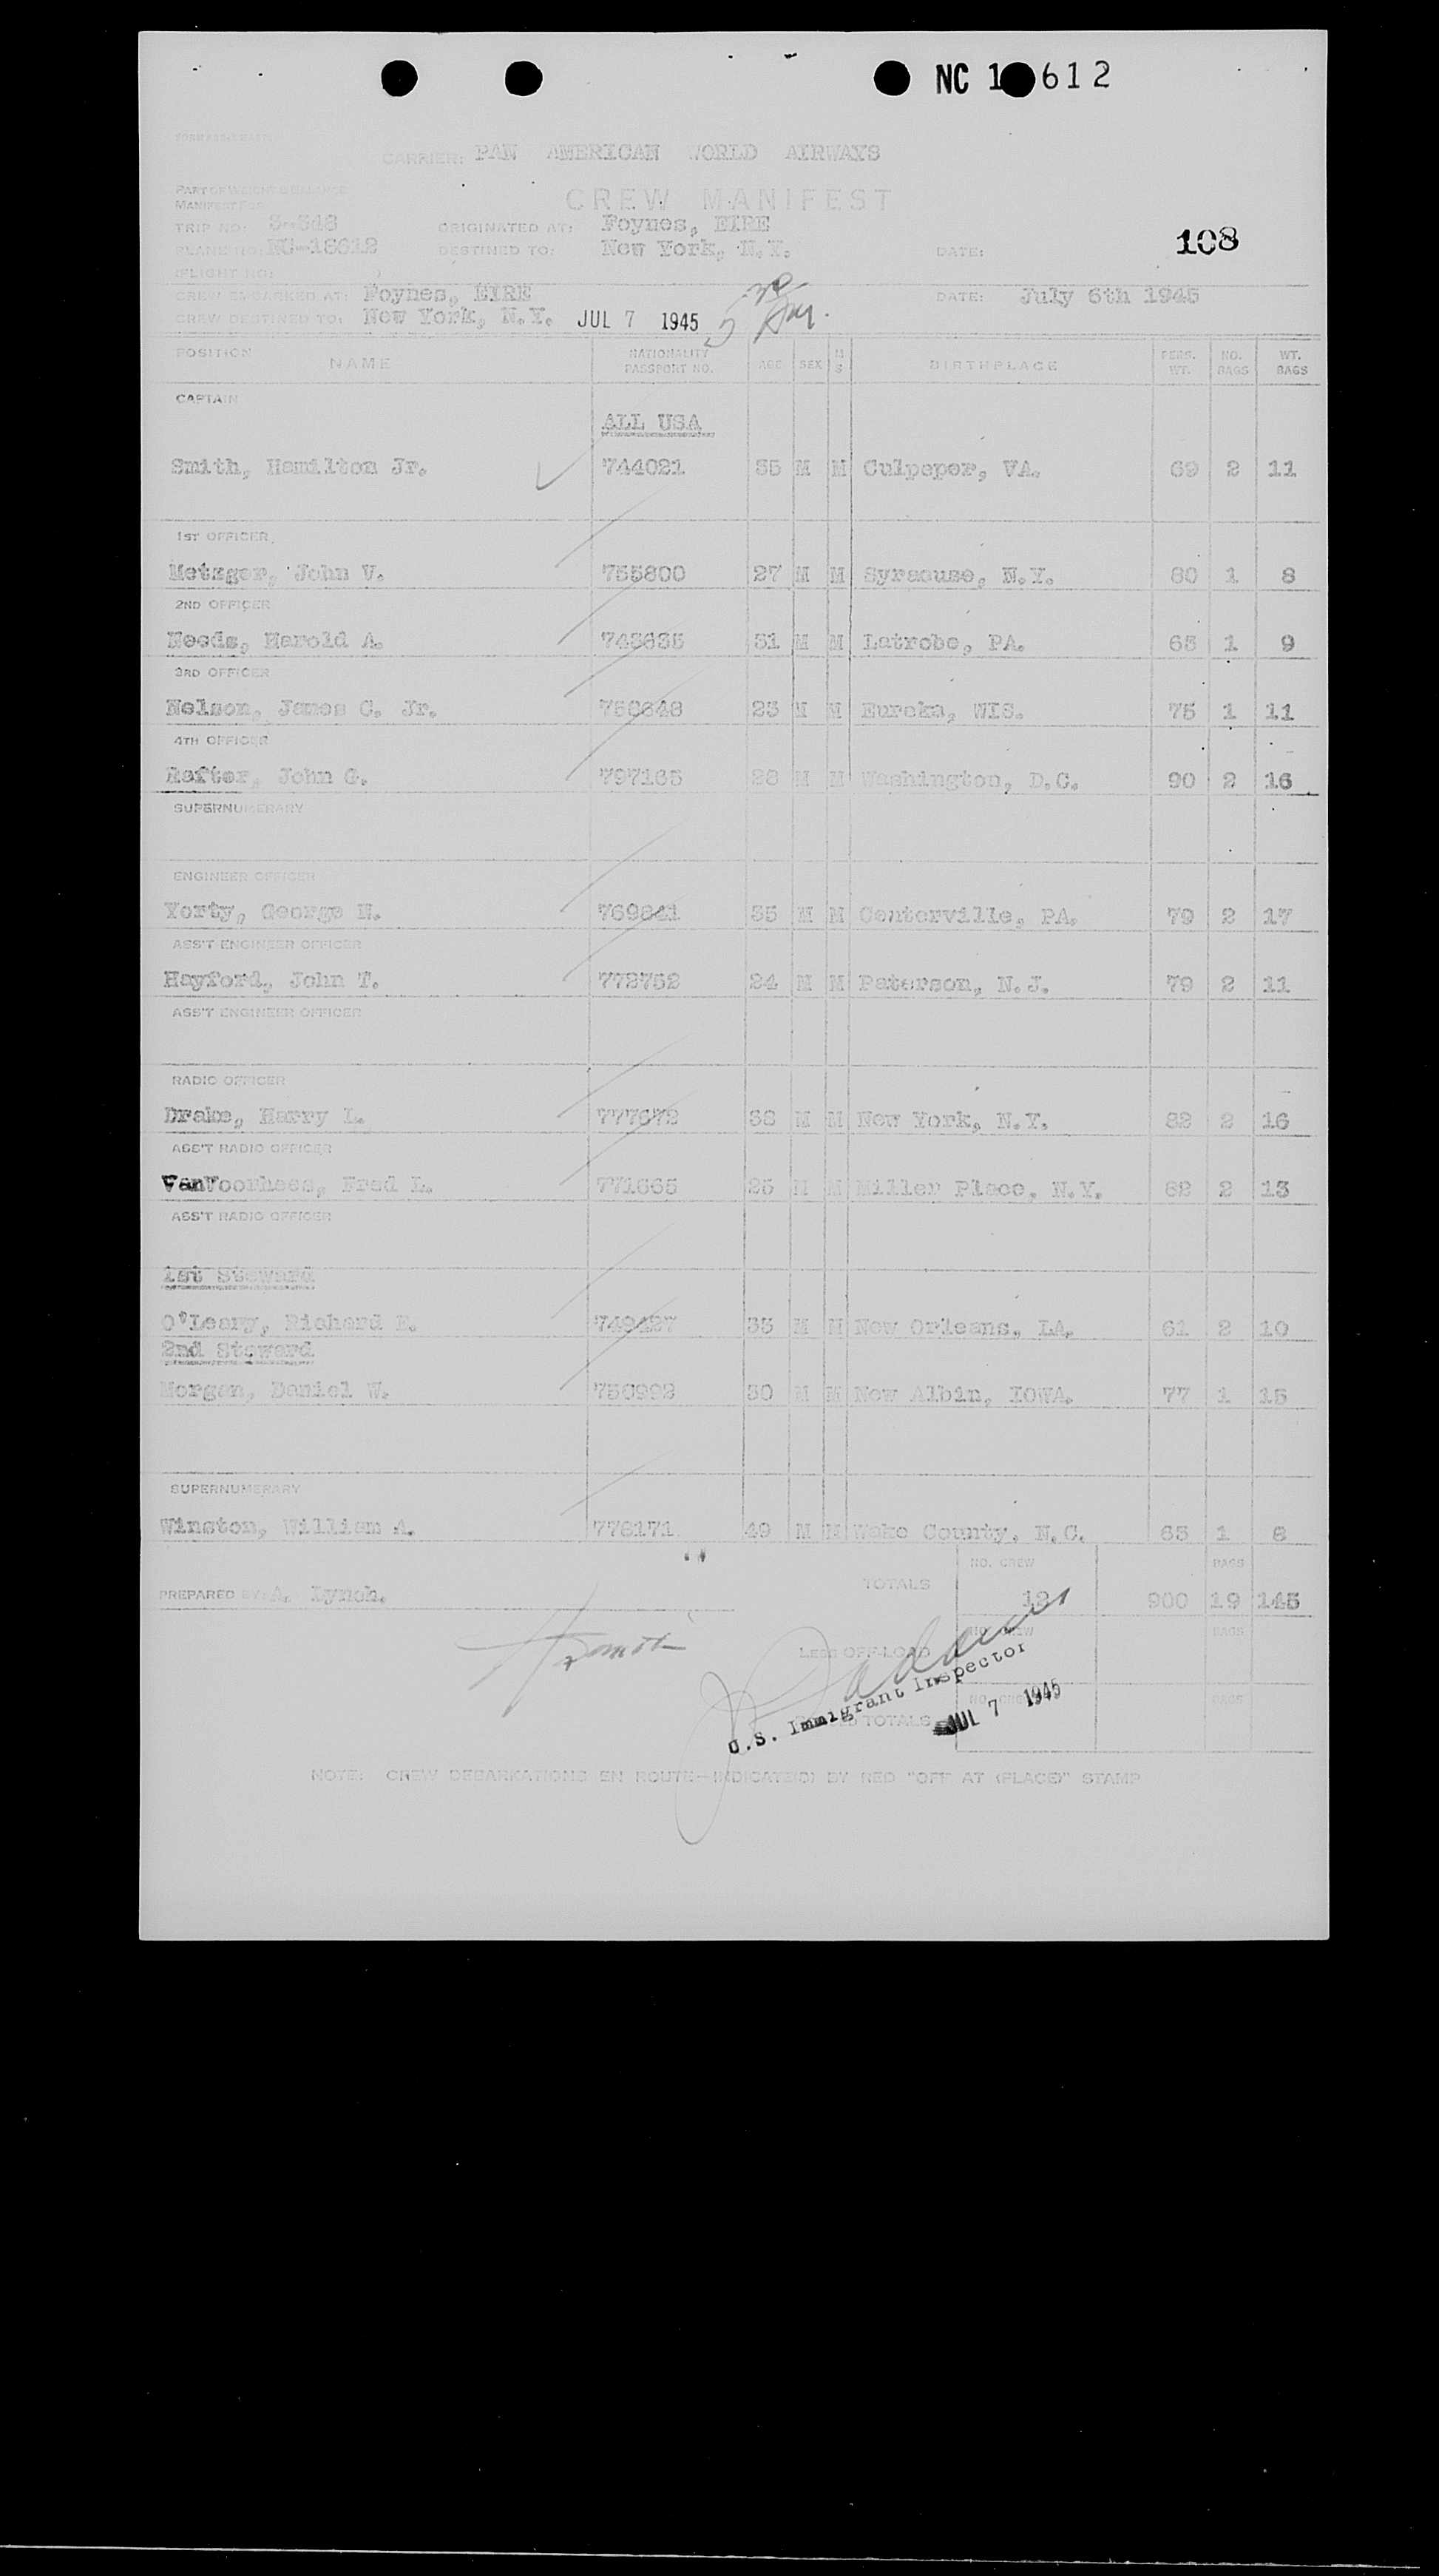 NC 1 612
CARRIER: PAN AMERICAN WORLD AIRWAYS
PART OF WEIGHT & BALANCE
MANIFEST FOR
CREW MANIFEST
TRIP NO: ORIGINATED AT: Foynes, EIRE
PLANE NO: NC-18612 DESTINED TO: New York, N.Y. DATE: 108
(FLIGHT NO: )
CREW EMBARKED AT: Foynes, EIRE DATE: July 6th 1945
CREW DESTINED TO: New York, N.Y. JUL 7 1945
POSITION NAME NATIONALITY PASSPORT NO. AGE SEX M S BIRTHPLACE PERS. WT. NO. BAGS WT. BAGS
CAPTAIN
ALL USA
Smith, Hamilton Jr. 744021 35 M M Culpeper, VA. 69 2 11
1ST OFFICER
Metzger, John V. 755800 27 M M Syracuse, N.Y. 80 1 8
2ND OFFICER
Needs, Harold A. 31 M M Latrobe, PA. 1 9
3RD OFFICER
Nelson, James C. Jr. M M Eureka, WIS. 75 1 11
4TH OFFICER
Rafter, John G. 797165 28 M M Washington, D.C. 90 2 16
SUPERNUMERARY
ENGINEER OFFICER
Yorty, George H. 769841 35 M M Centerville, PA. 79 2 17
ASS'T ENGINEER OFFICER
Hayford, John T. 772752 24 M M Paterson, N.J. 79 2 11
ASS'T ENGINEER OFFICER
RADIO OFFICER
Drake, Harry L. 777672 M M New York, N.Y. 82 2 16
ASS'T RADIO OFFICER
VanVoorhees, Fred L. 771665 25 M M Miller Place, N.Y. 82 2 13
ASS'T RADIO OFFICER
1st Steward
O'Leary, Richard E. 749427 M M New Orleans, LA. 61 2 10
2nd Steward
Morgan, Daniel W. 756992 30 M M New Albin, IOWA. 77 1 15
SUPERNUMERARY
Winston, William A. 778171 49 M M Wake County, N.C. 65 1 8
NO. CREW BAGS
PREPARED BY: A. Lynch. TOTALS 12 900 19 145
NO. CREW BAGS
LESS OFF-LOAD
U.S. Immigrant Inspector
NO. CREW BAGS
TOTALS JUL 7 1945
NOTE: CREW DEBARKATIONS EN ROUTE—INDICATE(D) BY RED "OFF AT (PLACE)" STAMP